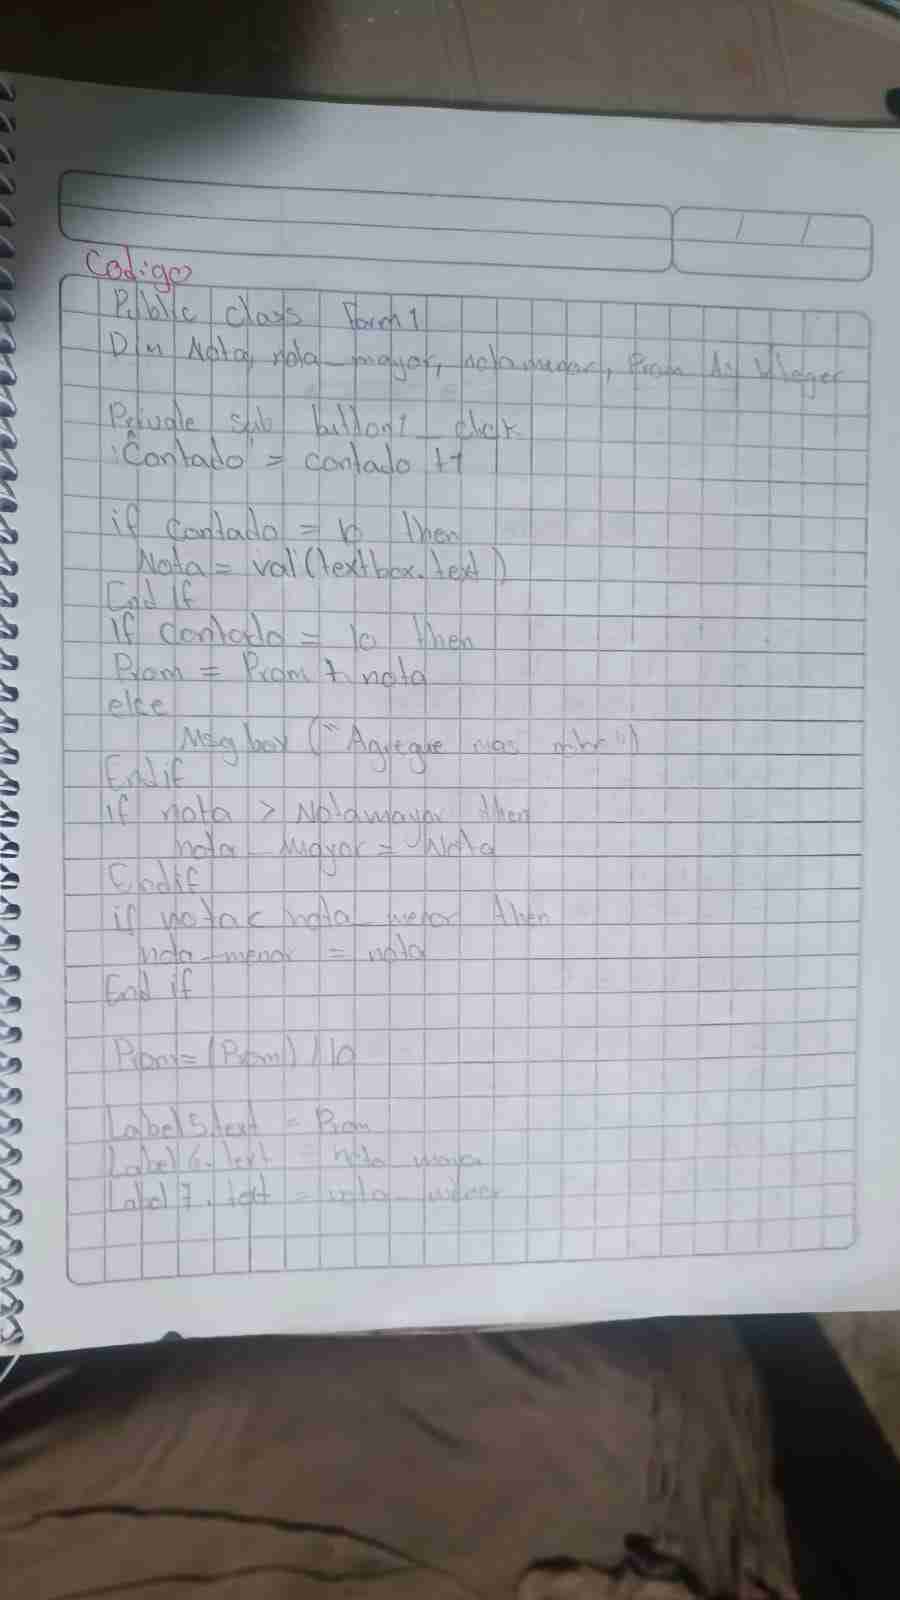 Codigo
Public class Form1
Dim Nota, nota_mayor, nota menor, Prom As Integer
Private sub button1_click
Contado = contado +1
if contado = 10 then
Nota = val(textbox.text)
End If
If contado = 10 then
Prom = Prom + nota
else
Msg box ("Agregue mas
End if
if nota > Notamayor then
nota_Mayor = Nota
End if
if nota < nota_menor then
nota_menor = nota
End if
Prom = (Prom) / 10
Label5.text = Prom
Label6.text = nota_mayor
Label7.text = nota_menor